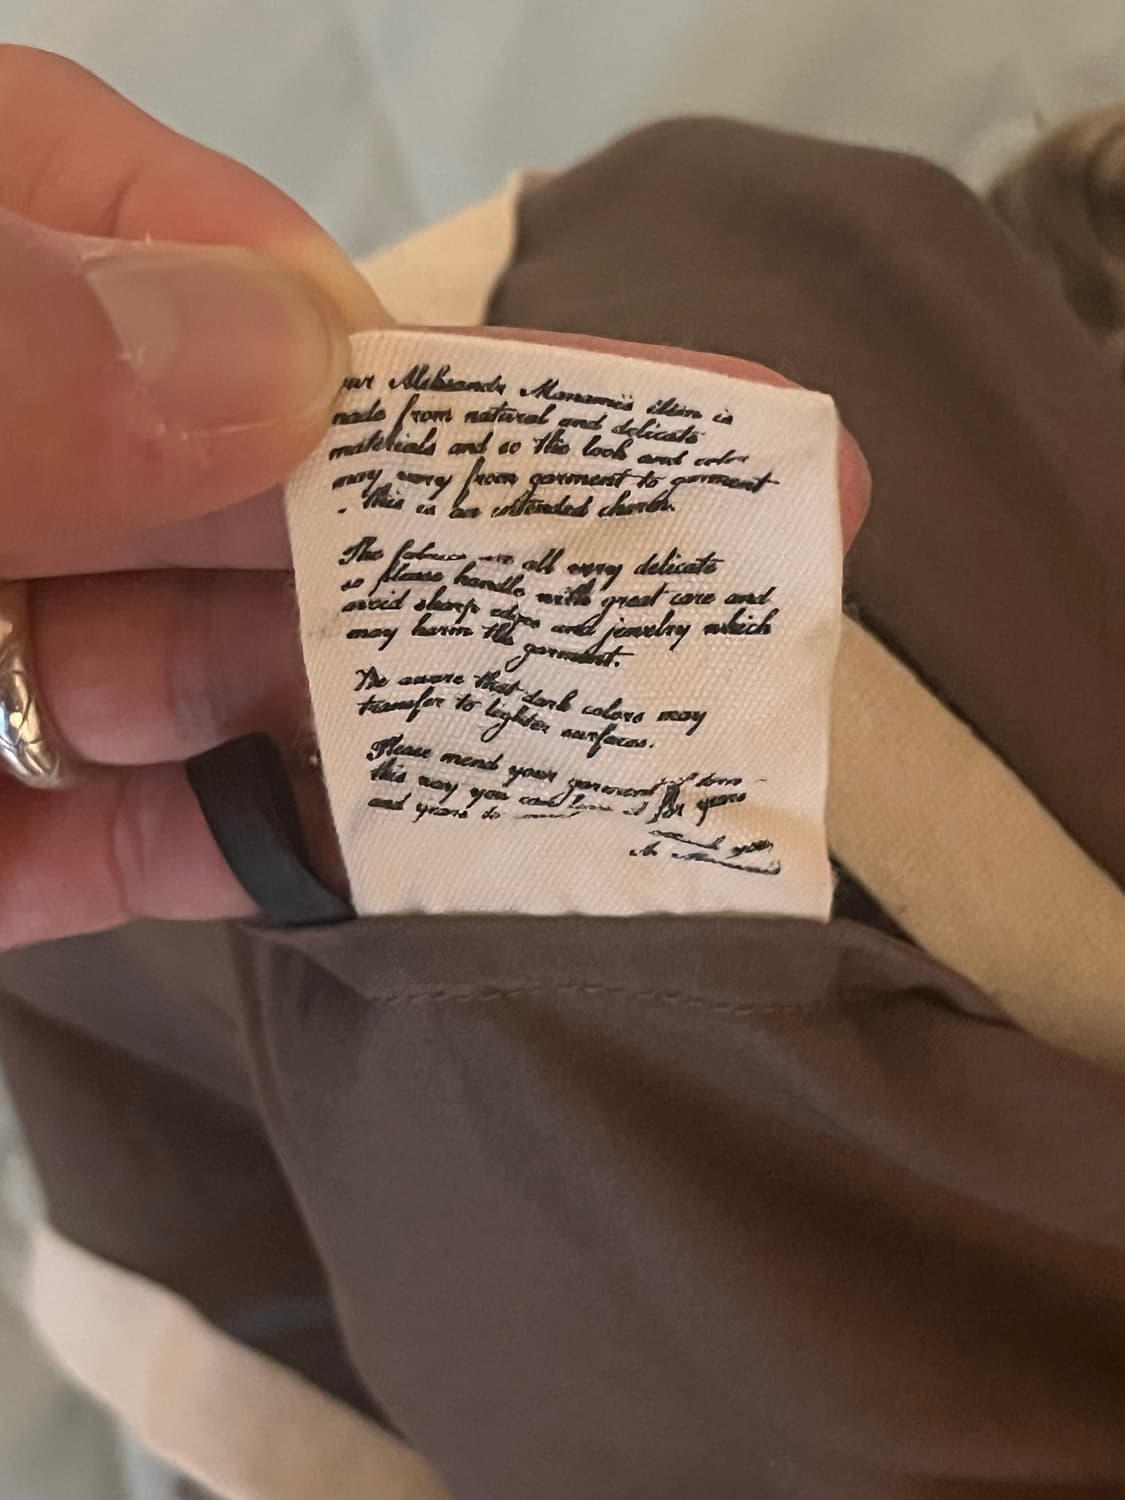 Aleksandr Manamïs item is
made from natural and delicate
materials and so the look and color
may vary from garment to garment
. This is an intended charm.
The fabrics are all very delicate
so please handle with great care and
avoid sharp edges and jewelry which
may harm the garment.
Be aware that dark colors may
transfer to lighter surfaces.
Please mend your garment if torn
this way you can have it for years
and years to
thank you
A. Manamïs